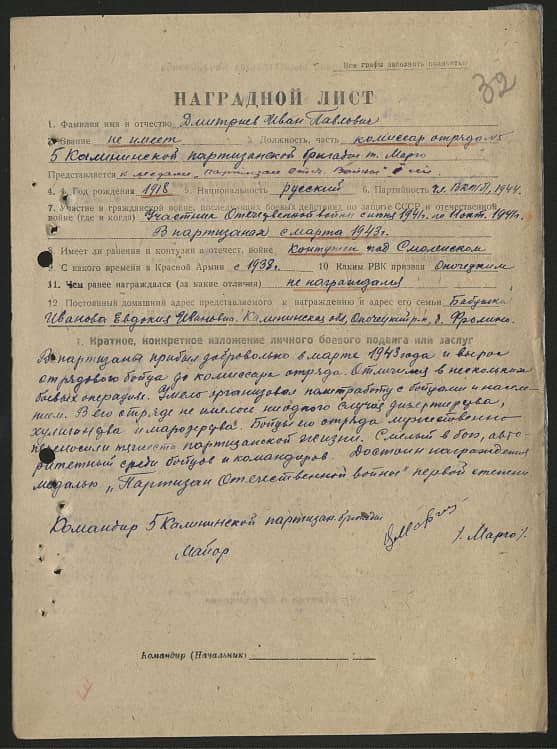 Все графы заполнять полностью
32
НАГРАДНОЙ ЛИСТ
1. Фамилия имя и отчество Дмитриев Иван Павлович
2. Звание не имеет 3. Должность, часть комиссар отряда
5 Калининской партизанской бригады т. Марго
Представляется к медали „партизан Отеч. Войны"
4. Год рождения 1918 5. Национальность русский 6. Партийность чл. ВКП(б), 1944.
7. Участие в гражданской войне, последующих боевых действиях по защите СССР и отечественной
войне (где и когда) Участник Отечественной войны с 1941г. по 1941г.
В партизанах с марта 1943г.
8. Имеет ли ранения и контузии в отечест. войне Контужен под Смоленском
9. С какого времени в Красной Армии с 1938г. 10 Каким РВК призван Опочецким
11. Чем ранее награждался (за какие отличия) не награждался
12. Постоянный домашний адрес представляемого к награждению и адрес его семьи Бабушка
Иванова Евдокия Ивановна. Калининская обл, Опочецкий р-н, д.
I. Краткое, конкретное изложение личного боевого подвига или заслуг
В партизаны прибыл добровольно в марте 1943 года и вырос
от рядового бойца до комиссара отряда. Отличился в нескольких
боевых операциях. Умело организовал политработу с бойцами и населе-
нием. В его отряде не имелось ни одного случая дизертирства,
хулиганства и мародерства. Бойцы его отряда мужественно
переносили тяжести партизанской жизни. Смелый в бою, авто-
ритетный среди бойцов и командиров. Достоин награждения
медалью „Партизан Отечественной войны" первой степени
Командир 5 Калининской партизан. бригады
Майор /Марго/.
Командир (Начальник)